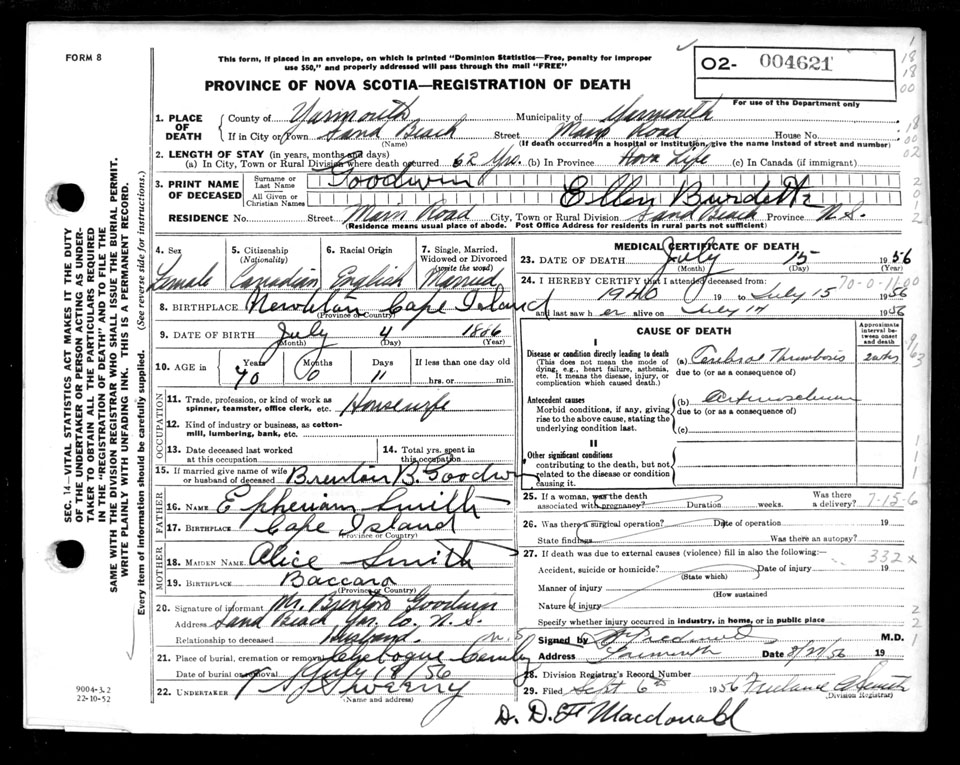 FORM 8
This form, if placed in an envelope, on which is printed "Dominion Statistics—Free, penalty for improper
use $50," and properly addressed will pass through the mail "FREE"
O2- 004621
For use of the Department only
PROVINCE OF NOVA SCOTIA—REGISTRATION OF DEATH
1. PLACE OF DEATH
County of Yarmouth Municipality of Yarmouth
If in City or Town Sand Beach Street Main Road House No.
(Name) (If death occurred in a hospital or institution, give the name instead of street and number)
2. LENGTH OF STAY (in years, months and days)
(a) In City, Town or Rural Division where death occurred 62 Yrs. (b) In Province Life (c) In Canada (if immigrant)
3. PRINT NAME OF DECEASED
Surname or Last Name Goodwin
All Given or Christian Names Ellen Burdett
RESIDENCE No. Street Main Road City, Town or Rural Division Sand Beach Province N.S.
(Residence means usual place of abode. Post Office Address for residents in rural parts not sufficient)
4. Sex Female
5. Citizenship (Nationality) Canadian
6. Racial Origin English
7. Single, Married, Widowed or Divorced (write the word) Married
8. BIRTHPLACE Cape Island
(Province or Country)
9. DATE OF BIRTH July 4 1886
(Month) (Day) (Year)
10. AGE in Years Months Days If less than one day old
70 0 11 hrs. or min.
OCCUPATION
11. Trade, profession, or kind of work as
spinner, teamster, office clerk, etc. Housewife
12. Kind of industry or business, as cotton-
mill, lumbering, bank, etc.
13. Date deceased last worked at this occupation
14. Total yrs. spent in this occupation
15. If married give name of wife
or husband of deceased Brenton B. Goodwin
FATHER
16. NAME Epheriam Smith
17. BIRTHPLACE Cape Island
(Province or Country)
MOTHER
18. MAIDEN NAME Alice Smith
19. BIRTHPLACE Baccaro
(Province or Country)
20. Signature of informant Mr. Brenton Goodwin
Address Sand Beach Yar. Co. N.S.
Relationship to deceased Husband
21. Place of burial, cremation or removal Chebogue N.S
Date of burial or removal July 18 56
22. UNDERTAKER Sweeny
(Name and address)
MEDICAL CERTIFICATE OF DEATH
23. DATE OF DEATH July 15 1956
(Month) (Day) (Year)
24. I HEREBY CERTIFY that I attended deceased from:
1940 19 to July 15 1956
and last saw h er alive on July 1956
70-0-11-00
CAUSE OF DEATH
Approximate interval between onset and death
I
Disease or condition directly leading to death
(This does not mean the mode of
dying, e.g., heart failure, asthenia,
etc. It means the disease, injury, or
complication which caused death.)
(a) Cerebral Thrombosis
due to (or as a consequence of)
Antecedent causes
Morbid conditions, if any, giving
rise to the above cause, stating the
underlying condition last.
(b)
due to (or as a consequence of)
(c)
II
Other significant conditions
contributing to the death, but not
related to the disease or condition
causing it.
25. If a woman, was the death associated with pregnancy? Duration weeks. Was there a delivery? 7-15-6
26. Was there a surgical operation? Date of operation 19
State findings Was there an autopsy?
27. If death was due to external causes (violence) fill in also the following:— 332x
Accident, suicide or homicide? Date of injury 19
(State which)
Manner of injury
(How sustained
Nature of injury
Specify whether injury occurred in industry, in home, or in public place
Signed by M.D.
Address Yarmouth Date 8/27/56 19
28. Division Registrar's Record Number
29. Filed Sept 6th 1956
(Division Registrar)
D. D. F Macdonald
SEC. 14—VITAL STATISTICS ACT MAKES IT THE DUTY
OF THE UNDERTAKER OR PERSON ACTING AS UNDER-
TAKER TO OBTAIN ALL THE PARTICULARS REQUIRED
IN THE "REGISTRATION OF DEATH" AND TO FILE THE
SAME WITH THE DIVISION REGISTRAR WHO SHALL ISSUE THE BURIAL PERMIT.
WRITE PLAINLY WITH UNFADING INK. THIS IS A PERMANENT RECORD.
Every item of information should be carefully supplied. (See reverse side for instructions.)
9004-3.2
22-10-52